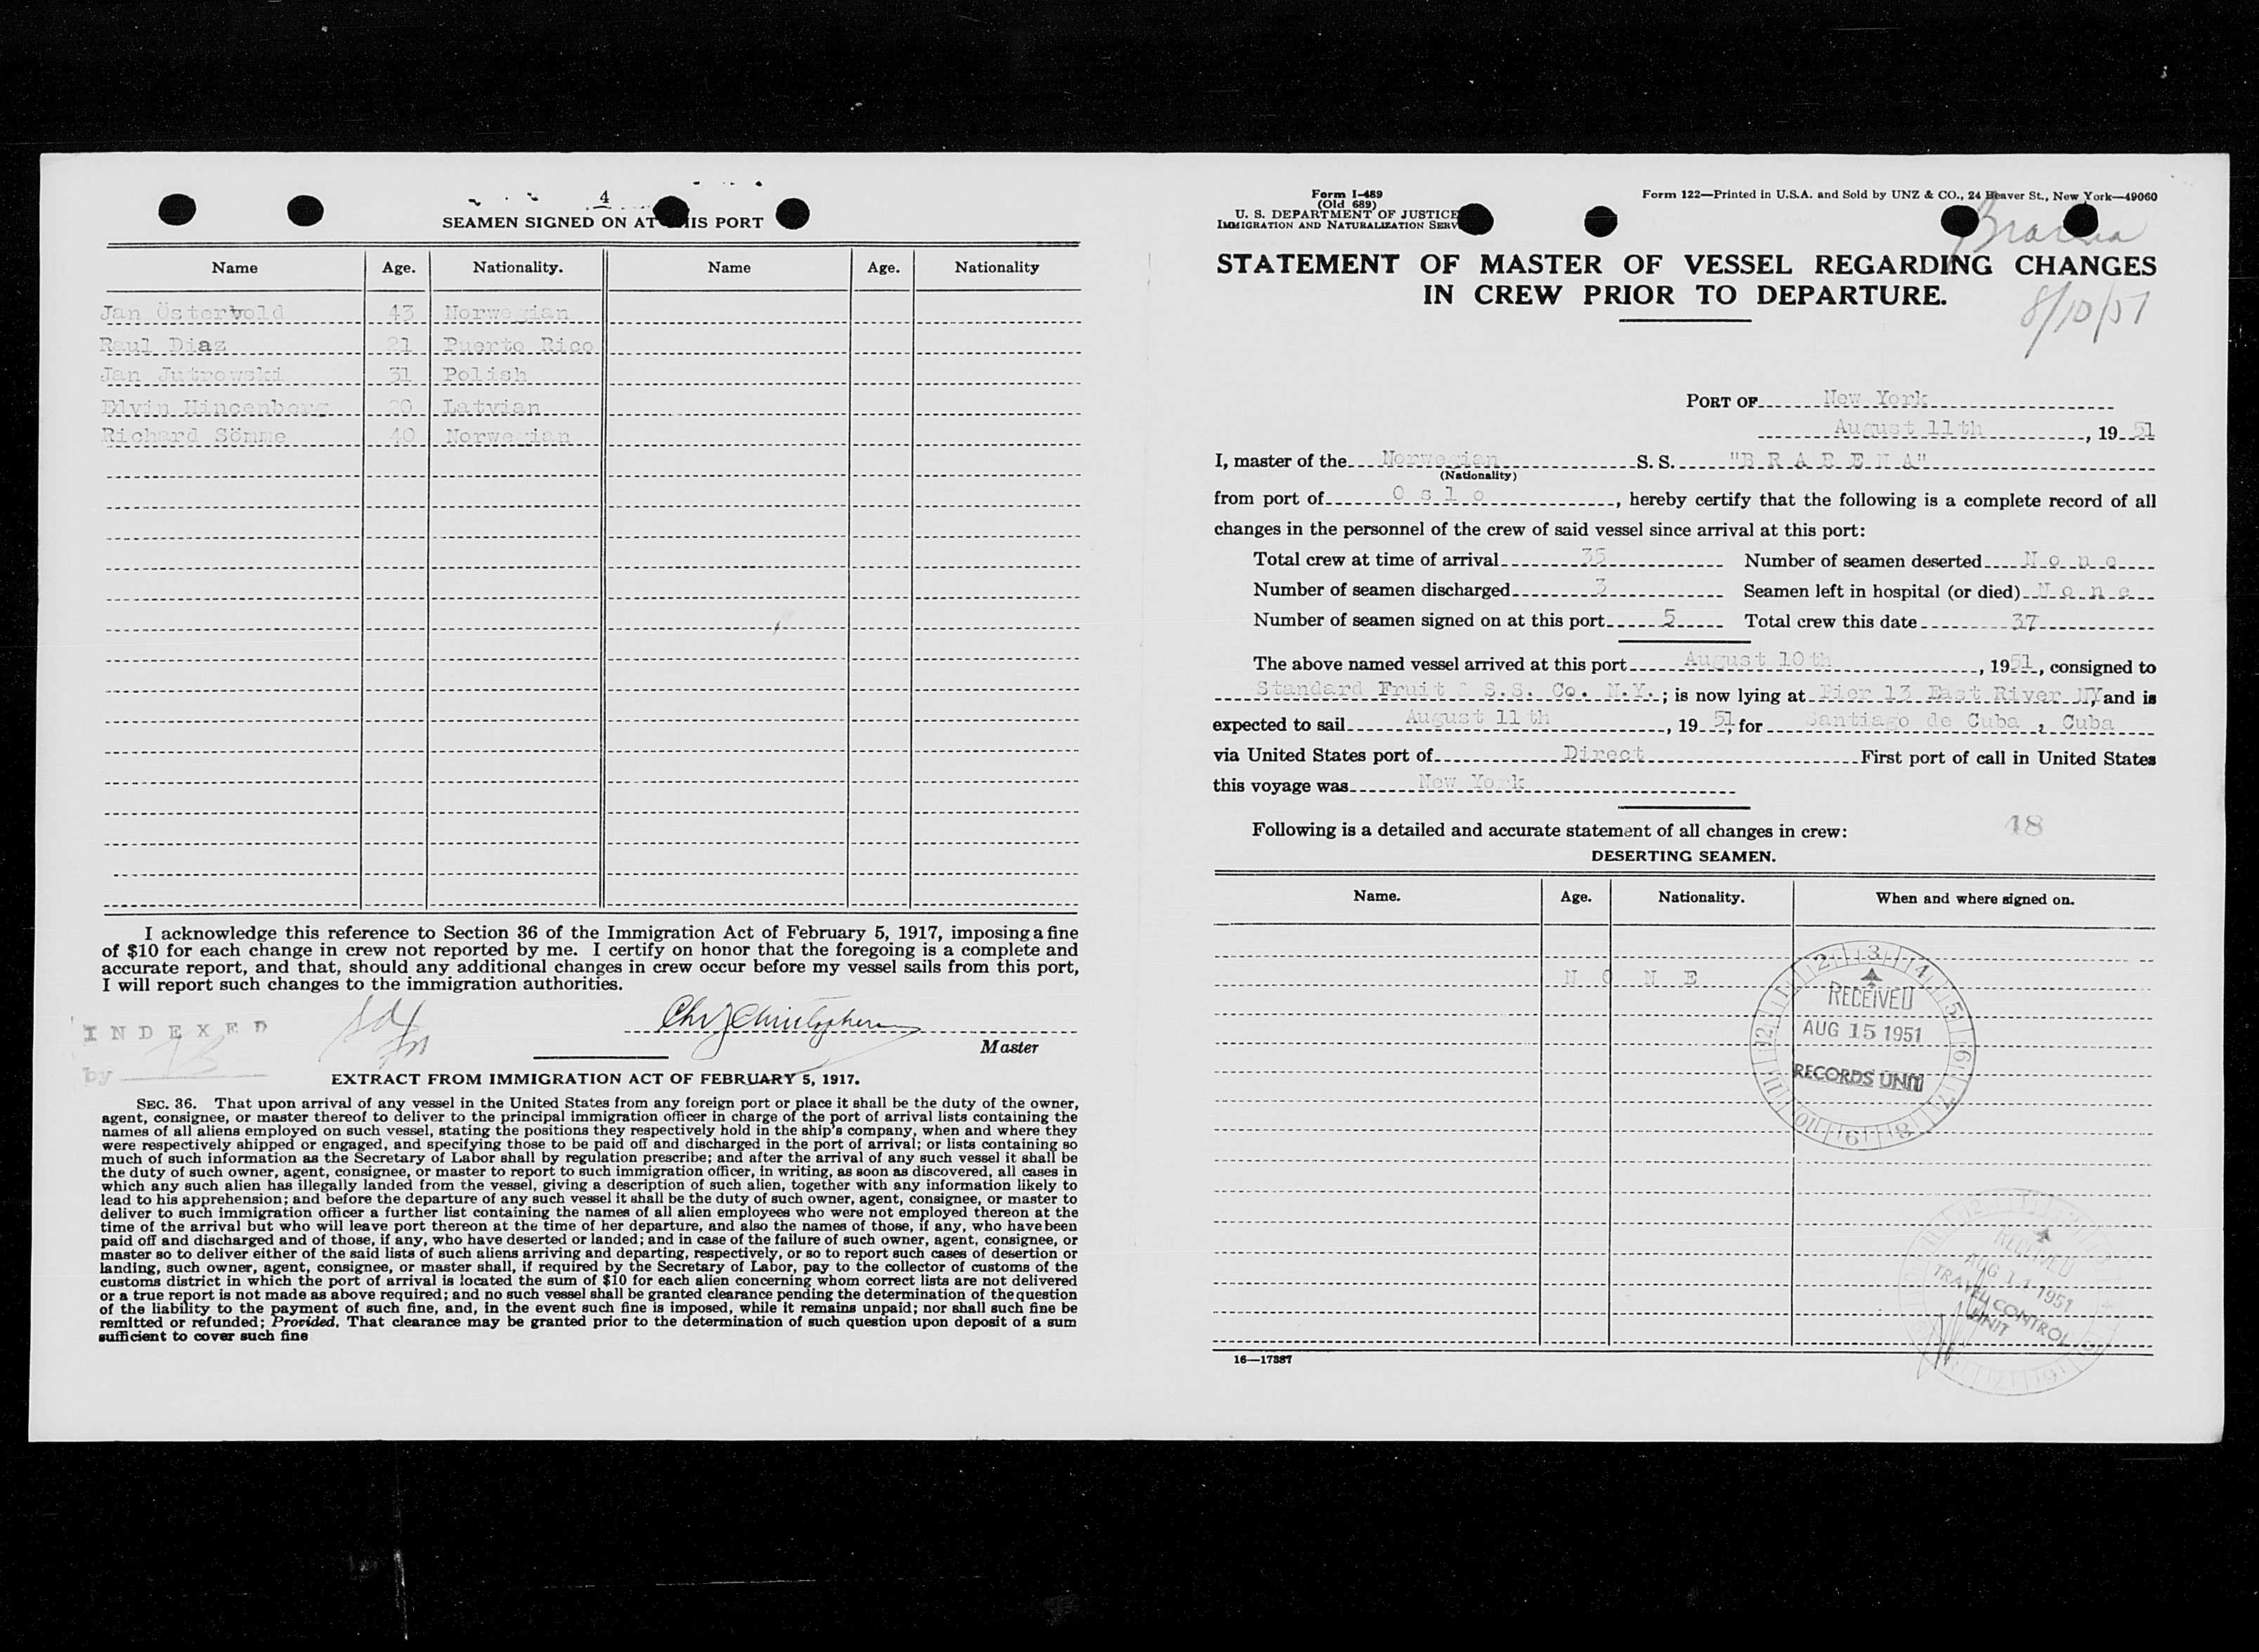 4
SEAMEN SIGNED ON AT THIS PORT
Name Age. Nationality. Name Age. Nationality
Jan Östervold 43 Norwegian
Raul Diaz 21 Puerto Rico
Jan Jutrowski 31 Polish
Edvin Hincenberg 20 Latvian
Richard Sömme 40 Norwegian
I acknowledge this reference to Section 36 of the Immigration Act of February 5, 1917, imposing a fine
of $10 for each change in crew not reported by me. I certify on honor that the foregoing is a complete and
accurate report, and that, should any additional changes in crew occur before my vessel sails from this port,
I will report such changes to the immigration authorities.
INDEXED
by
Master
EXTRACT FROM IMMIGRATION ACT OF FEBRUARY 5, 1917.
SEC. 36. That upon arrival of any vessel in the United States from any foreign port or place it shall be the duty of the owner,
agent, consignee, or master thereof to deliver to the principal immigration officer in charge of the port of arrival lists containing the
names of all aliens employed on such vessel, stating the positions they respectively hold in the ship's company, when and where they
were respectively shipped or engaged, and specifying those to be paid off and discharged in the port of arrival; or lists containing so
much of such information as the Secretary of Labor shall by regulation prescribe; and after the arrival of any such vessel it shall be
the duty of such owner, agent, consignee, or master to report to such immigration officer, in writing, as soon as discovered, all cases in
which any such alien has illegally landed from the vessel, giving a description of such alien, together with any information likely to
lead to his apprehension; and before the departure of any such vessel it shall be the duty of such owner, agent, consignee, or master to
deliver to such immigration officer a further list containing the names of all alien employees who were not employed thereon at the
time of the arrival but who will leave port thereon at the time of her departure, and also the names of those, if any, who have been
paid off and discharged and of those, if any, who have deserted or landed; and in case of the failure of such owner, agent, consignee, or
master so to deliver either of the said lists of such aliens arriving and departing, respectively, or so to report such cases of desertion or
landing, such owner, agent, consignee, or master shall, if required by the Secretary of Labor, pay to the collector of customs of the
customs district in which the port of arrival is located the sum of $10 for each alien concerning whom correct lists are not delivered
or a true report is not made as above required; and no such vessel shall be granted clearance pending the determination of the question
of the liability to the payment of such fine, and, in the event such fine is imposed, while it remains unpaid; nor shall such fine be
remitted or refunded; Provided, That clearance may be granted prior to the determination of such question upon deposit of a sum
sufficient to cover such fine
Form I-489
(Old 689)
U. S. DEPARTMENT OF JUSTICE
IMMIGRATION AND NATURALIZATION SERV
Form 122—Printed in U.S.A. and Sold by UNZ & CO., 24 Beaver St., New York—49060
STATEMENT OF MASTER OF VESSEL REGARDING CHANGES
IN CREW PRIOR TO DEPARTURE.
8/10/51
PORT OF New York
August 11th, 19 51
I, master of the Norwegian S. S. "B R A R E N A"
(Nationality)
from port of O s l o, hereby certify that the following is a complete record of all
changes in the personnel of the crew of said vessel since arrival at this port:
Total crew at time of arrival 35 Number of seamen deserted N o n e
Number of seamen discharged 3 Seamen left in hospital (or died) N o n e
Number of seamen signed on at this port 5 Total crew this date 37
The above named vessel arrived at this port August 10th, 1951, consigned to
Standard Fruit & S.S. Co. N.Y.; is now lying at Pier 13 East River NY, and is
expected to sail August 11th, 19 51, for Santiago de Cuba, Cuba
via United States port of Direct First port of call in United States
this voyage was New York
Following is a detailed and accurate statement of all changes in crew: 48
DESERTING SEAMEN.
Name. Age. Nationality. When and where signed on.
N O N E
RECEIVED
AUG 15 1951
RECORDS UNIT
RECEIVED
AUG 11 1951
TRAVEL CONTROL
UNIT
16—17387